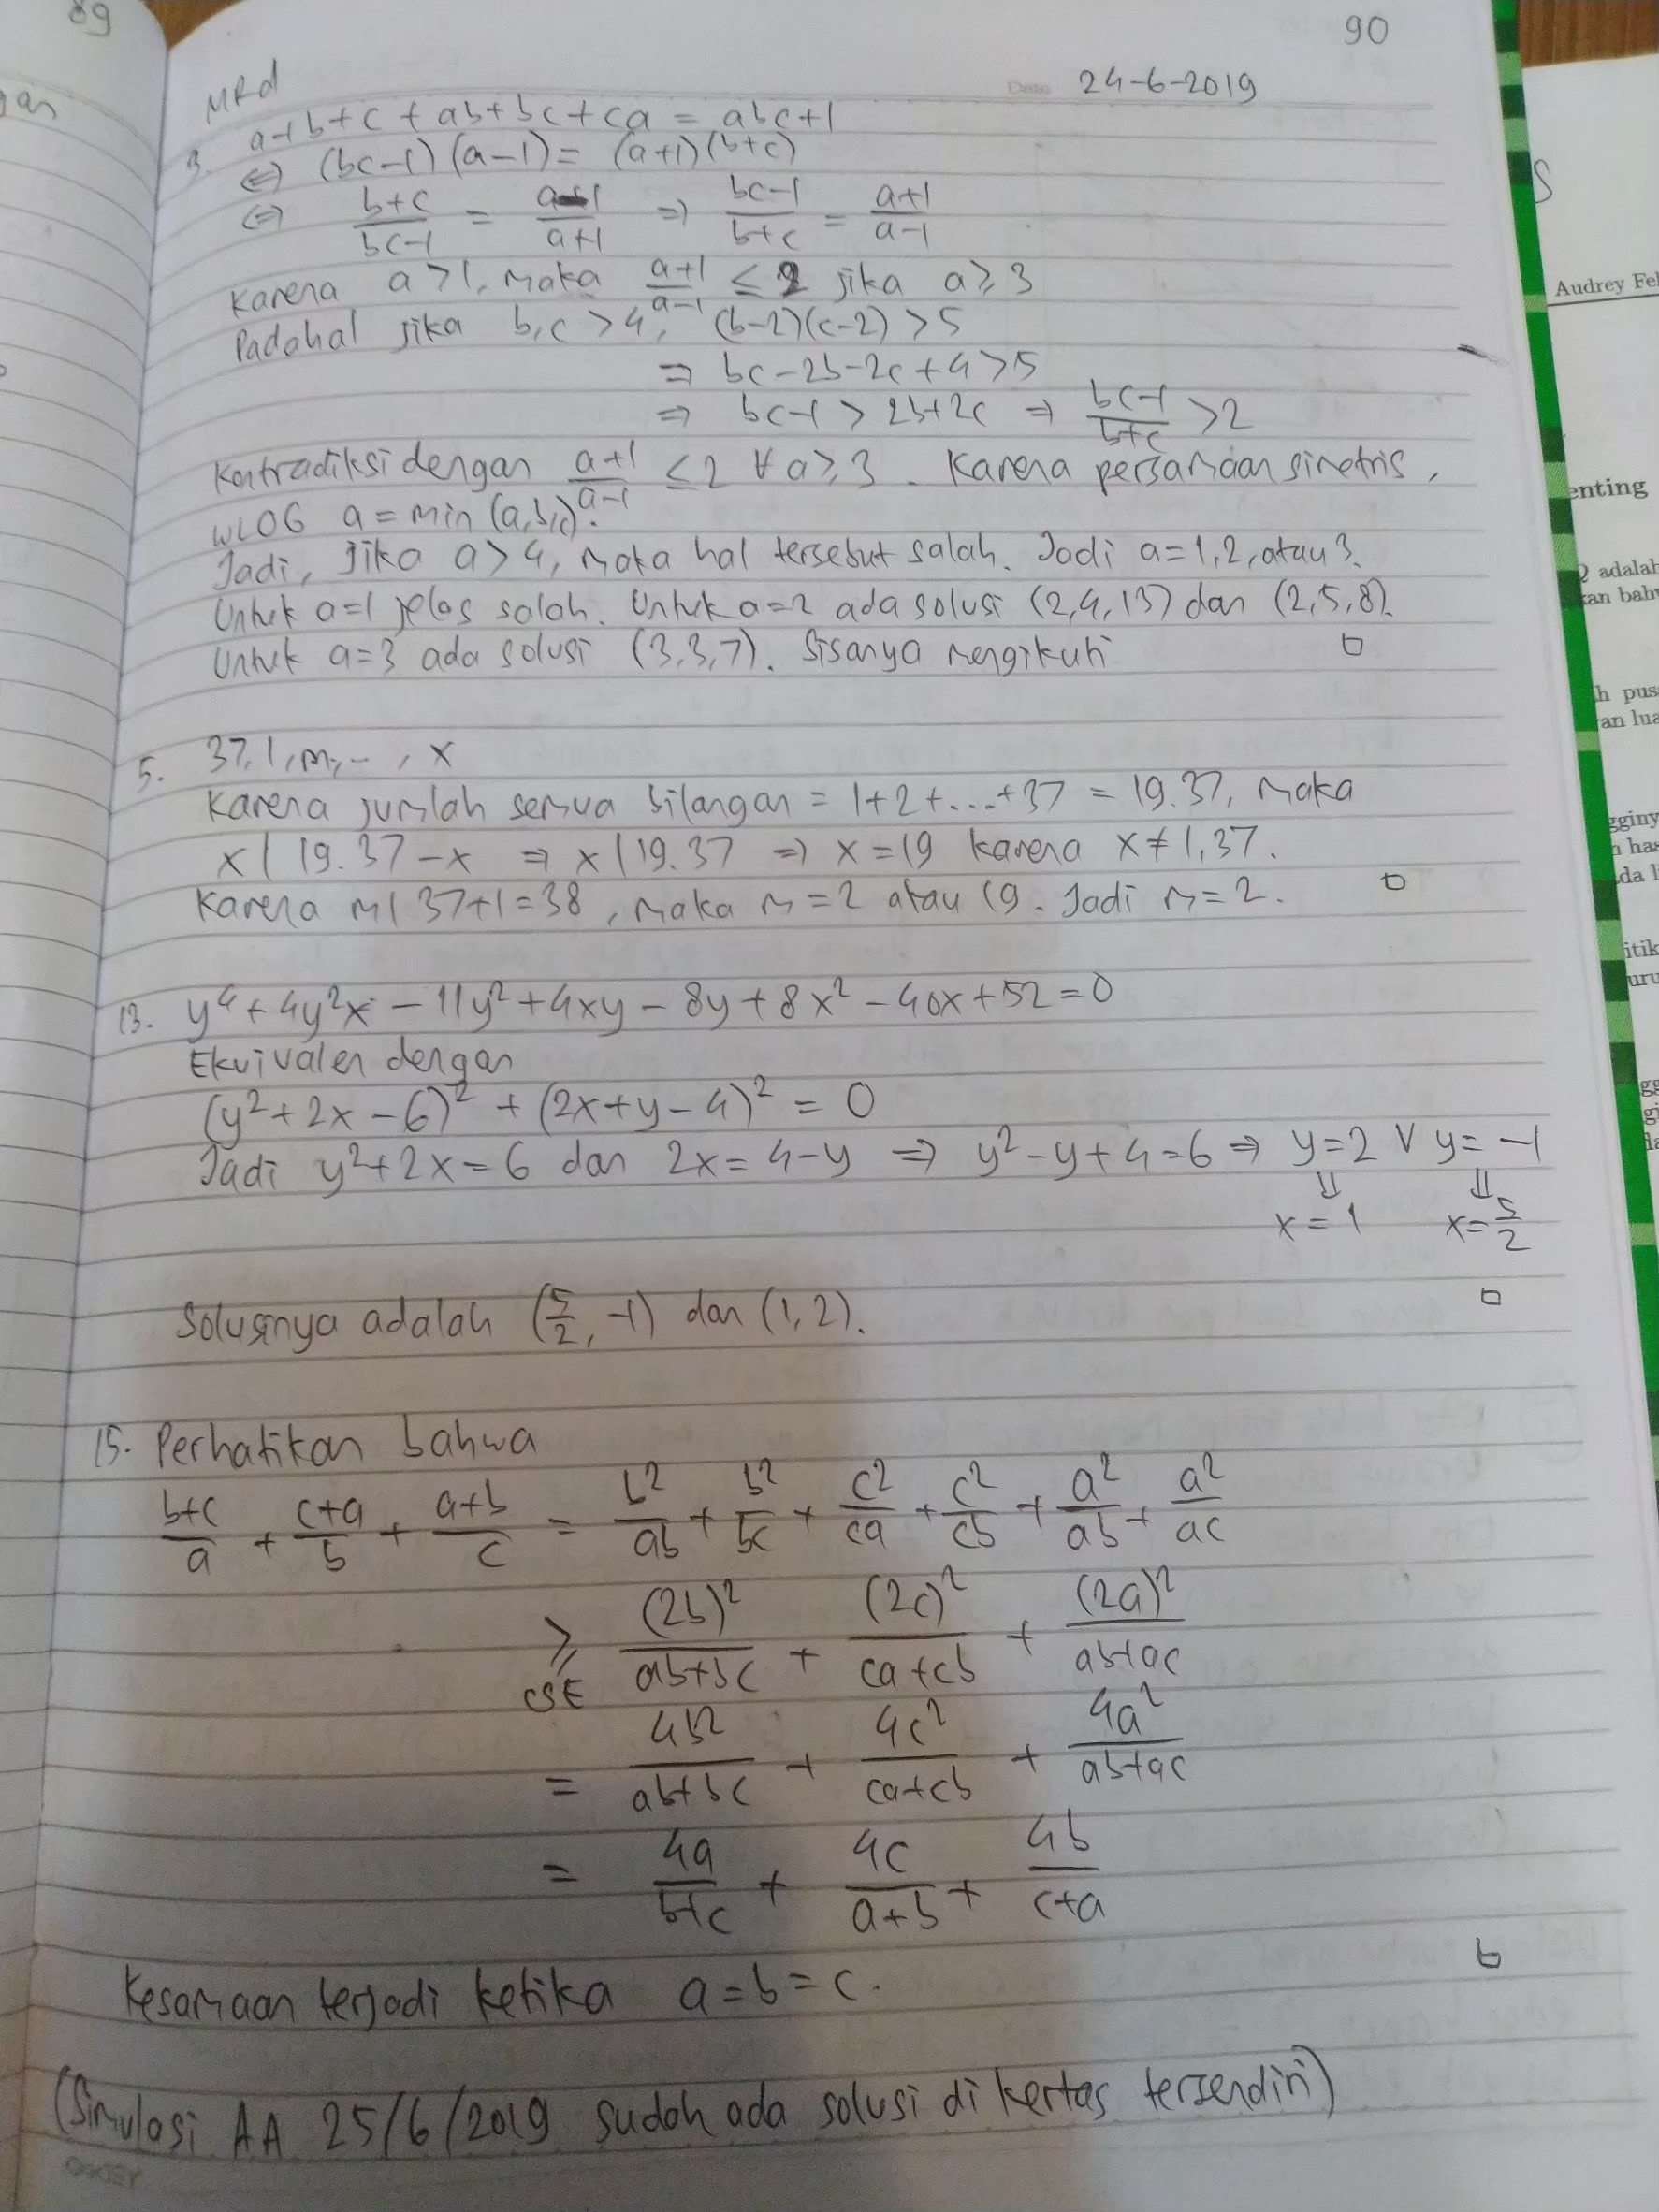 89
gan
90
Date 24-6-2019
MRd
3. a+b+c+ab+bc+ca = abc+1
⇔ (bc-1)(a-1) = (a+1)(b+c)
⇔ (b+c)/(bc-1) = (a-1)/(a+1) ⇒ (bc-1)/(b+c) = (a+1)/(a-1)
Karena a>1, maka (a+1)/(a-1) ≤ 2 jika a ≥ 3
Padahal jika b,c > 4, (b-2)(c-2) > 5
⇒ bc-2b-2c+4 > 5
⇒ bc-1 > 2b+2c ⇒ (bc-1)/(b+c) > 2
Kontradiksi dengan (a+1)/(a-1) ≤ 2 ∀ a ≥ 3. Karena persamaan simetris,
WLOG a = min (a,b,c).
Jadi, jika a > 4, maka hal tersebut salah. Jadi a=1,2, atau 3.
Untuk a=1 jelas salah. Untuk a=2 ada solusi (2,4,13) dan (2,5,8).
Untuk a=3 ada solusi (3,3,7). Sisanya mengikuti □
5. 37,1,m,..., x
Karena jumlah semua bilangan = 1+2+...+37 = 19.37, maka
x | 19.37-x ⇒ x | 19.37 ⇒ x = 19 karena x ≠ 1,37.
Karena m | 37+1=38, maka m=2 atau 19. Jadi m=2. □
13. y⁴+4y²x-11y²+4xy-8y+8x²-40x+52=0
Ekuivalen dengan
(y²+2x-6)² + (2x+y-4)² = 0
Jadi y²+2x=6 dan 2x=4-y ⇒ y²-y+4=6 ⇒ y=2 ∨ y=-1
⇓ ⇓
x=1 x=5/2
Solusinya adalah (5/2, -1) dan (1,2). □
15. Perhatikan bahwa
(b+c)/a + (c+a)/b + (a+b)/c = b²/ab + b²/bc + c²/ca + c²/cb + a²/ab + a²/ac
≥ (2b)²/(ab+bc) + (2c)²/(ca+cb) + (2a)²/(ab+ac)
CSE
= 4b²/(ab+bc) + 4c²/(ca+cb) + 4a²/(ab+ac)
= 4a/(b+c) + 4c/(a+b) + 4b/(c+a)
Kesamaan terjadi ketika a=b=c. □
(Simulasi AA 25/6/2019 sudah ada solusi di kertas tersendiri)
S
Audrey Fel
enting
adalah
kan bahw
h pus
an lua
itik